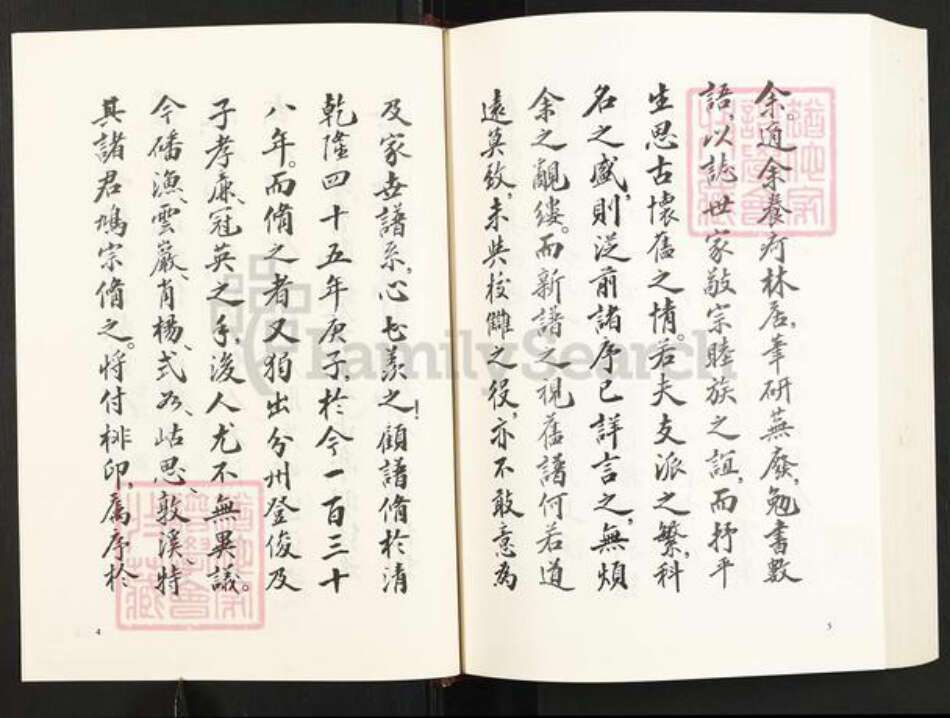 及家世譜系，心甚羨之！顧譜脩於清
乾隆四十五年庚子，於今一百三十
八年。而脩之者又獨出分州登俊及
子孝廉冠英之手，後人尤不無異議。
今磻漁、雲巖、肖楊、式如、岵思、敦溪、特
其諸君鳩宗脩之。將付梓印，屬序於
4
余。適余養疴林居，筆研蕪廢，勉書數
語，以誌世家敬宗睦族之誼，而抒平
生思古懷舊之情。若夫支派之繁，科
名之盛，則從前諸序已詳言之，無煩
余之覼縷。而新譜之視舊譜何若道
遠莫致，未與校讎之役，亦不敢意為
5
FamilySearch